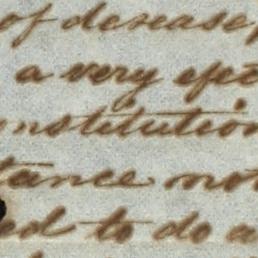 of desease,
a very efec
nstitution
tance not
ed to do a